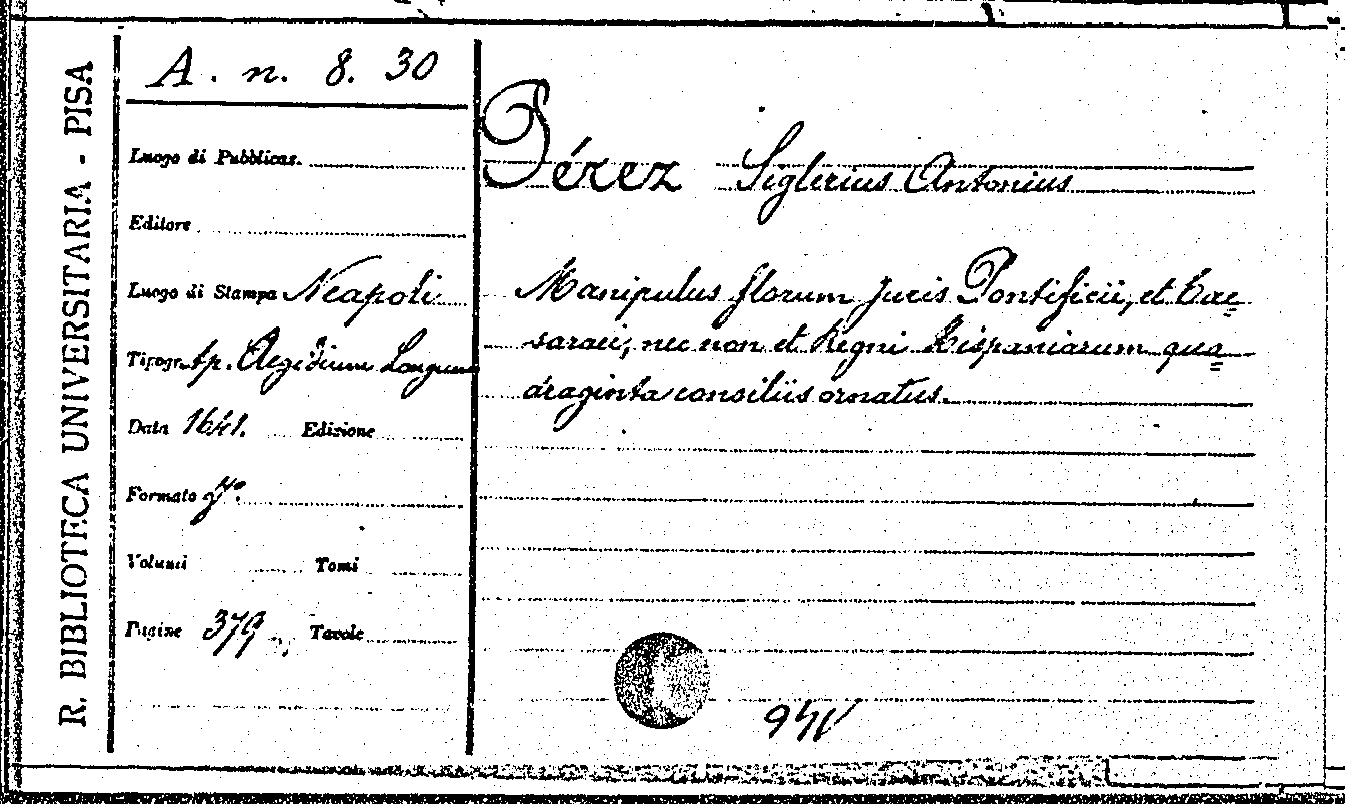 R. BIBLIOTECA UNIVERSITARIA - PISA
A. n. 8. 30
Luogo di Pubblicaz.
Editore
Luogo di Stampa Neapoli
Tipogr. tp. Aegidium Longum
Data 1641. Edizione
Formato 4°.
Volumi Tomi
Pagine 379 Tavole
Pérez Siglerius Antonius
Manipulus florum Juris Pontificii, et Cae=
saraei, nec non et Regni Hispaniarum qua=
draginta consiliis ornatus.